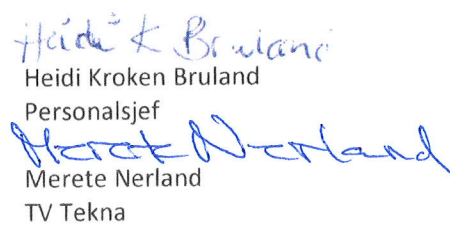 Heidi K Bruland
Heidi Kroken Bruland
Personalsjef
Merete Nerland
Merete Nerland
TV Tekna